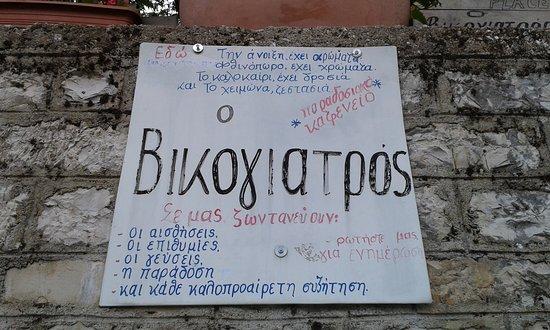 PLACE
Εδώ Την άνοιξη, έχει αρώματα
φθινόπωρο, έχει χρώματα.
Το καλοκαίρι, έχει δροσιά
και το χειμώνα, ζεστασιά.
* παραδοσιακό καφενείο *
Ο
Βικογιατρός
Σε μας ζωντανεύουν:
- οι αισθήσεις,
- οι επιθυμίες,
- οι γεύσεις,
- η παράδοση
- και κάθε καλοπροαίρετη συζήτηση.
- ρωτήστε μας
για ενημέρωση